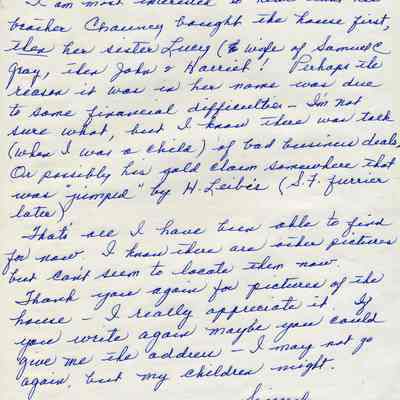 I am most interested to
brother Chauncey bought the house first,
then her sister Lucy (& wife of Samuel C
Gray, then John & Harriet! Perhaps the
reason it was in her name was due
to some financial difficulties – I'm not
sure what, but I know there was talk
(when I was a child) of bad business deals,
Or possibly his gold claim somewhere that
was "jumped" by H. Leibes (S.F. furrier
later)
That's all I have been able to find
for now. I know there are other pictures
but can't seem to locate them now.
Thank you again for pictures of the
house – I really appreciate it. If
you write again maybe you could
give me the address – I may not go
again, but my children might.